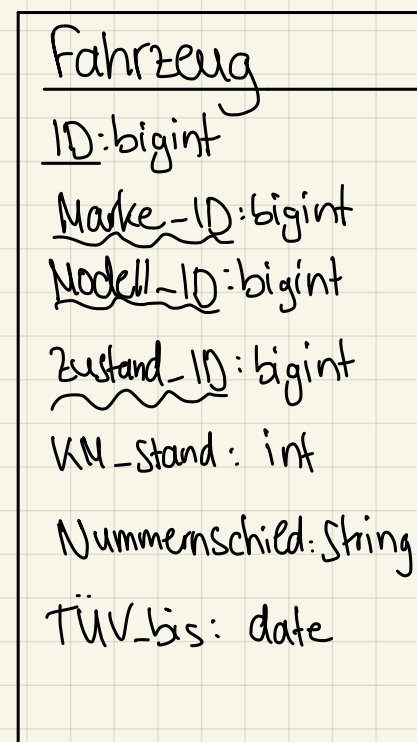 Fahrzeug
ID:bigint
Marke_ID:bigint
Modell_ID:bigint
Zustand_ID:bigint
KM_stand: int
Nummernschild:String
TÜV_bis: date